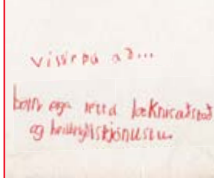 vissir þú að...
börn eiga rétt á læknisaðstoð
og heilbrigðisþjónustu